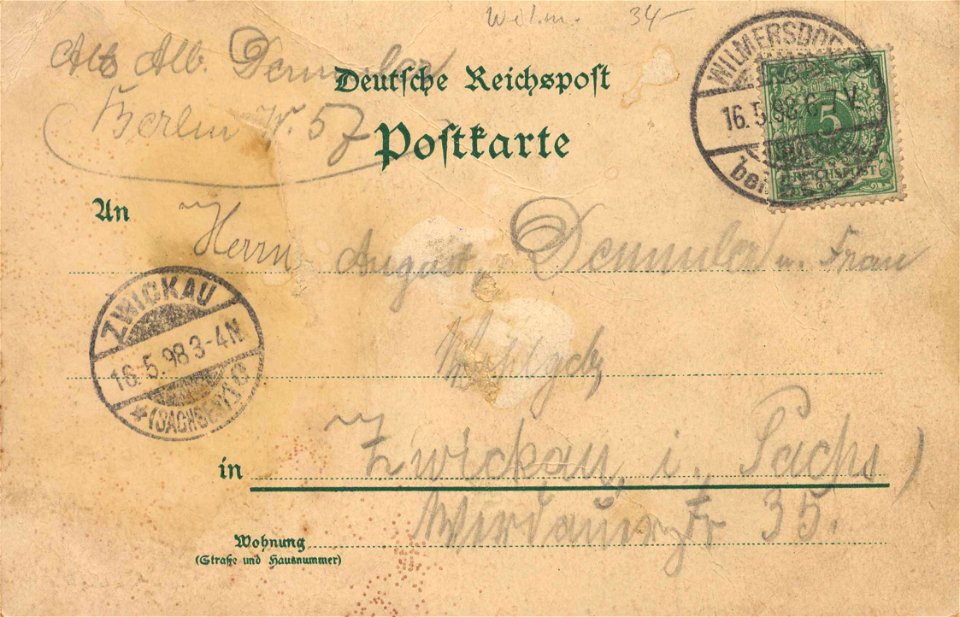 Wilm. 34-
Abs Alb. Demmler
Berlin W. 57
Deutsche Reichspost
Postkarte
WILMERSDORF
16.5.98. 6-7 V.
bei
5
REICHSPOST
An Herrn August Demmler u. Frau
ZWICKAU
16.5.98 3-4N
*(SACHSEN)1c
in Zwickau i. Sachs
Werdauerstr 35.
Wohnung
(Straße und Hausnummer)